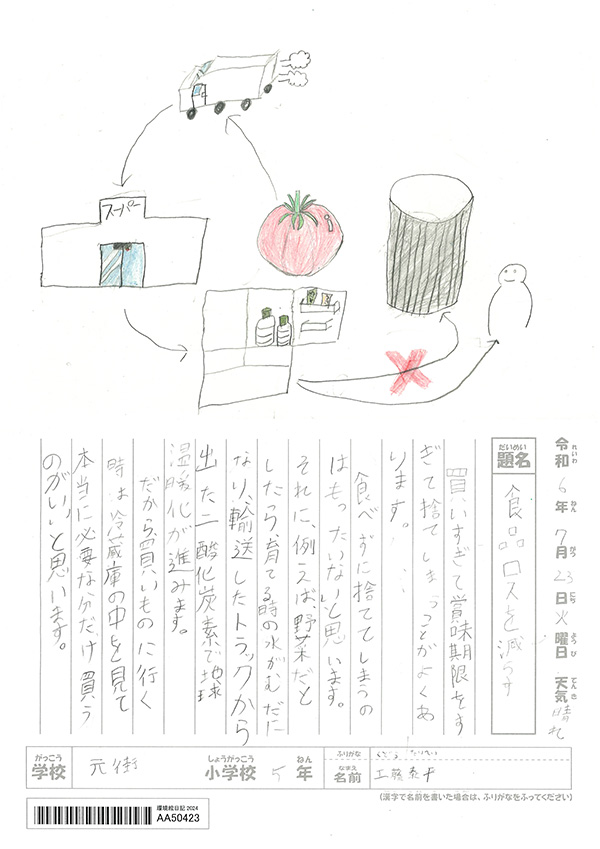 スーパー
令和6年7月23日火曜日 天気晴れ
れいわ ねん がつ にち ようび てんき
だいめい
題名 食品ロスを減らす
買いすぎて賞味期限をす
ぎて捨ててしまうことがよくあ
ります。
食べずに捨ててしまうの
はもったいないと思います。
それに、例えば、野菜だと
したら育てる時の水がむだに
なり、輸送したトラックから
出た二酸化炭素で地球
温暖化が進みます。
だから、買いものに行く
時は冷蔵庫の中を見て
本当に必要な分だけ買う
のがいいと思います。
がっこう しょうがっこう ねん
学校 元街 小学校 5年
ふりがな
なまえ
名前 工藤
(漢字で名前を書いた場合は、ふりがなをふってください)
環境絵日記2024
AA50423